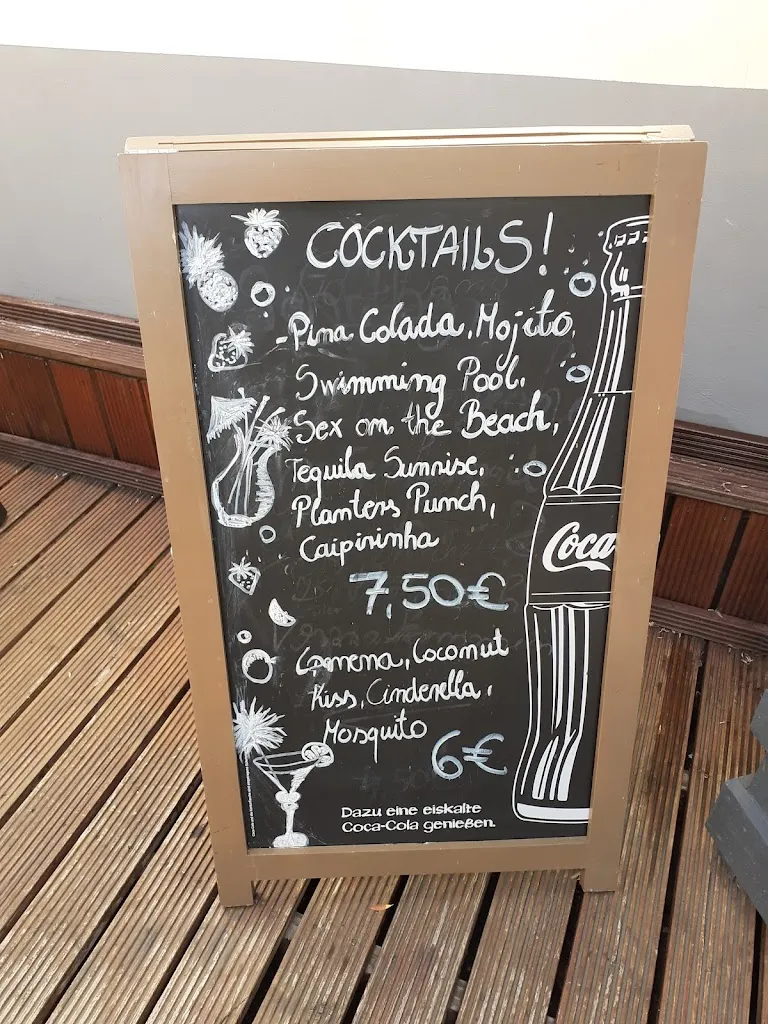 COCKTAILS!
- Pina Colada, Mojito,
Swimming Pool,
Sex on the Beach,
Tequila Sunrise,
Planters Punch,
Caipirinha
7,50€
Coconut
Kiss, Cinderella,
Mosquito
6€
Coca
Dazu eine eiskalte
Coca-Cola genießen.